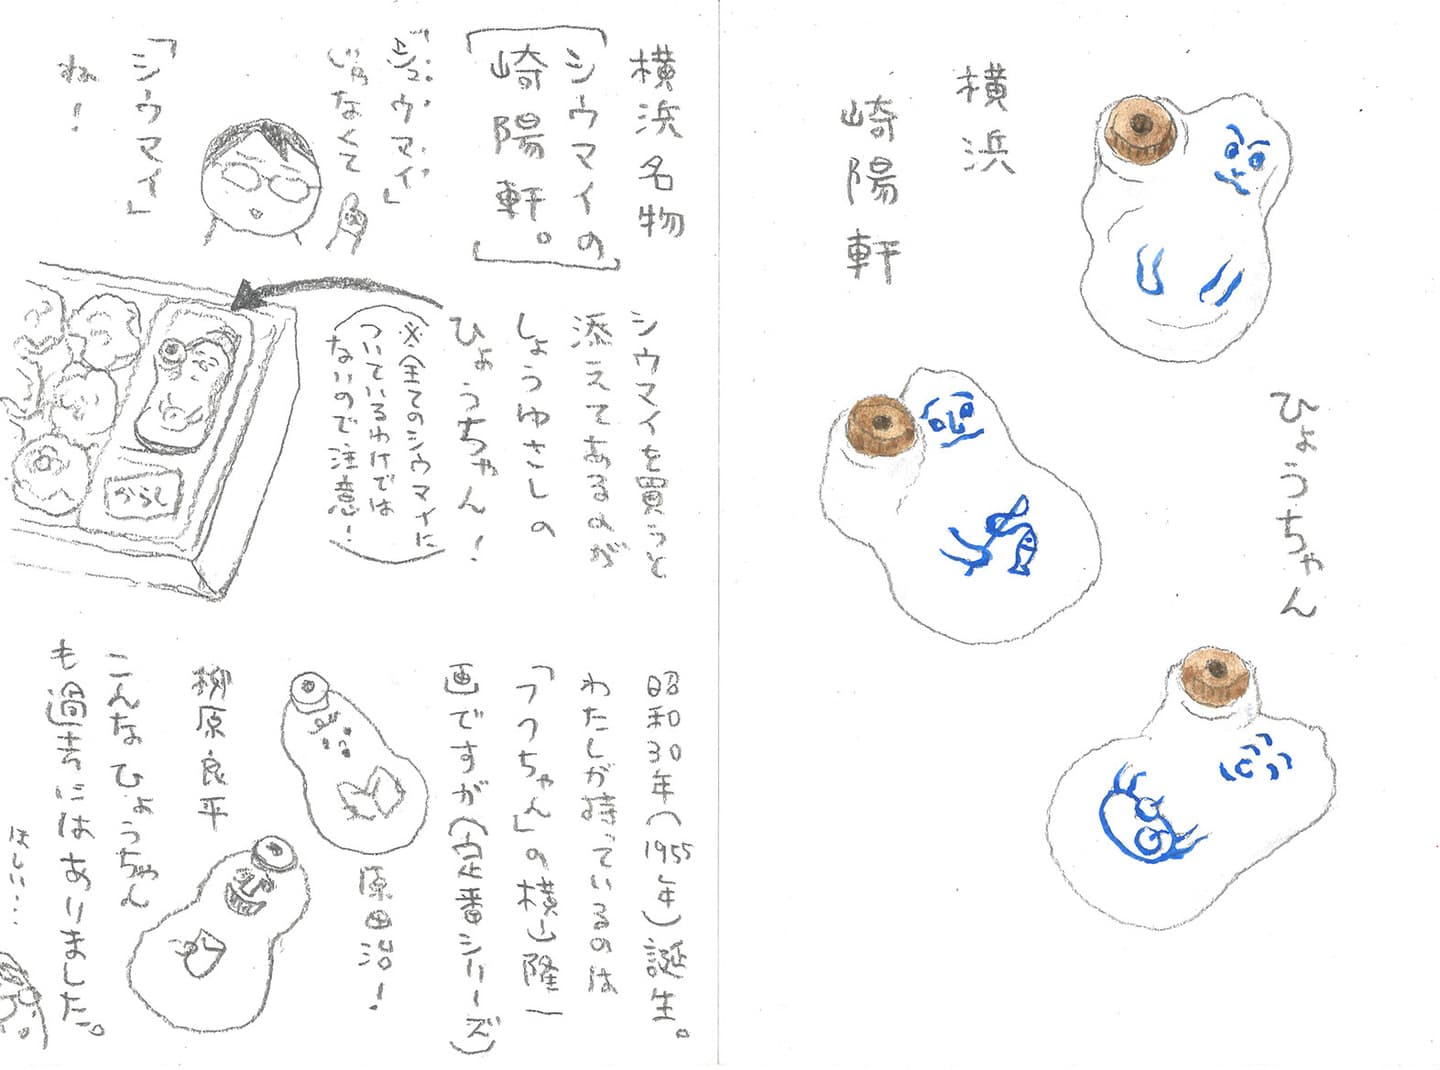 横浜
崎陽軒
ひょうちゃん
横浜名物
「シウマイの
崎陽軒。」
「シュウマイ」
じゃなくて
「シウマイ」
ね！
シウマイを買うと
添えてあるのが
しょうゆさしの
ひょうちゃん！
※全てのシウマイに
ついているわけでは
ないので注意！
からし
昭和30年(1955年)誕生。
わたしが持っているのは
「フクちゃん」の横山隆一
画ですが(定番シリーズ)
原田治！
柳原良平
こんなひょうちゃん
も過去にはありました。
ほしい…